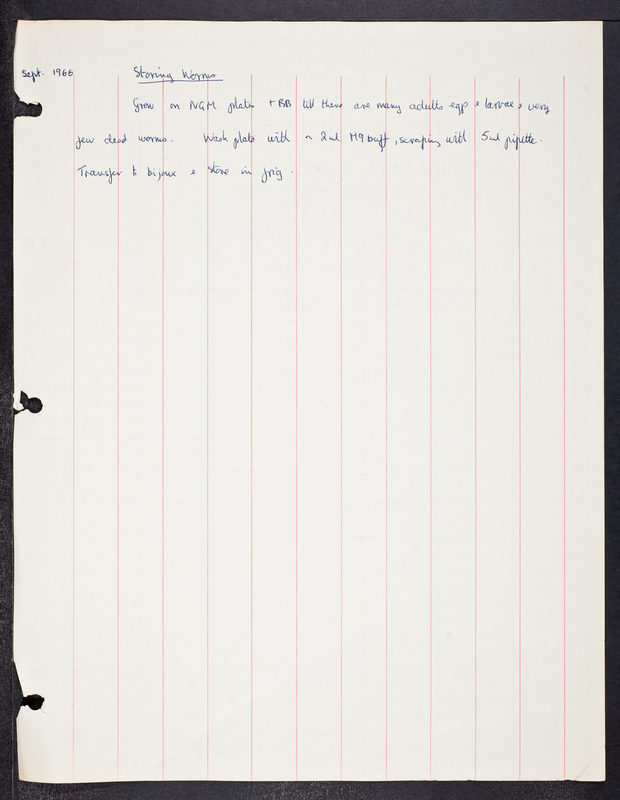 Sept. 1966 Storing Worms
Grow on NGM plates + BB till there are many adults eggs & larvae & very
few dead worms. Wash plate with ~ 2ml M9 buff, scraping with 5ml pipette.
Transfer to bijoux & store in frig.